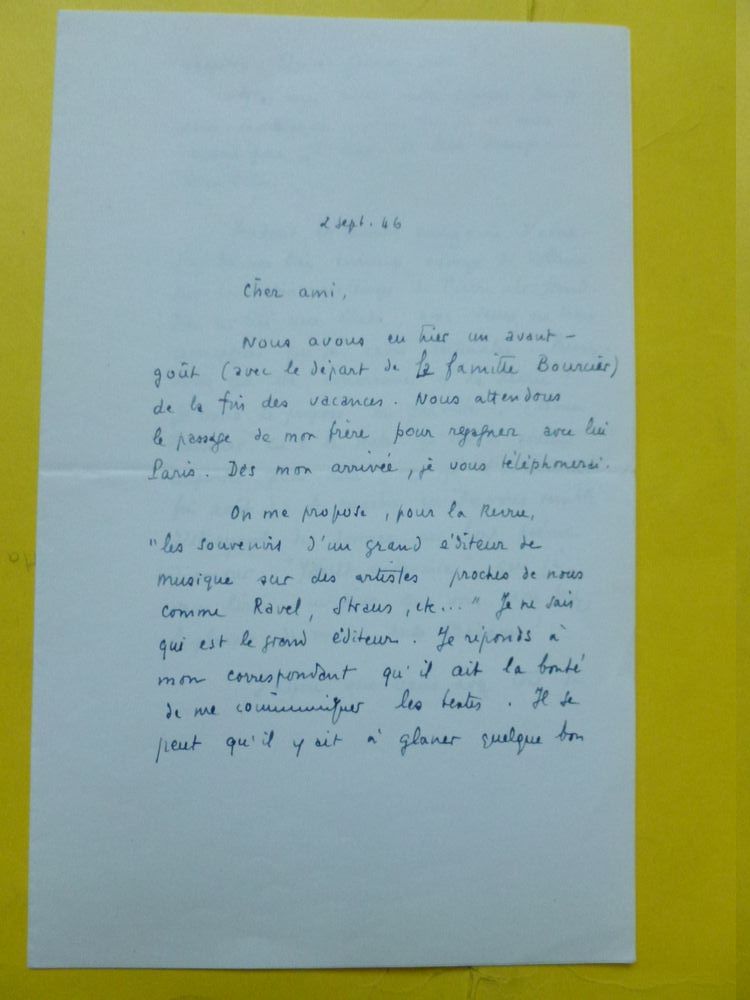 2 sept. 46
Cher ami,
Nous avons eu hier un avant-
goût (avec le départ de la famille Bourcier)
de la fin des vacances. Nous attendons
le passage de mon frère pour regagner avec lui
Paris. Dès mon arrivée, je vous téléphonerai.
On me propose, pour la Revue,
"les souvenirs d'un grand éditeur de
musique sur des artistes proches de nous
comme Ravel, Straus, etc..." Je ne sais
qui est le grand éditeur. Je réponds à
mon correspondant qu'il ait la bonté
de me communiquer les textes. Il se
peut qu'il y ait à glaner quelque bon